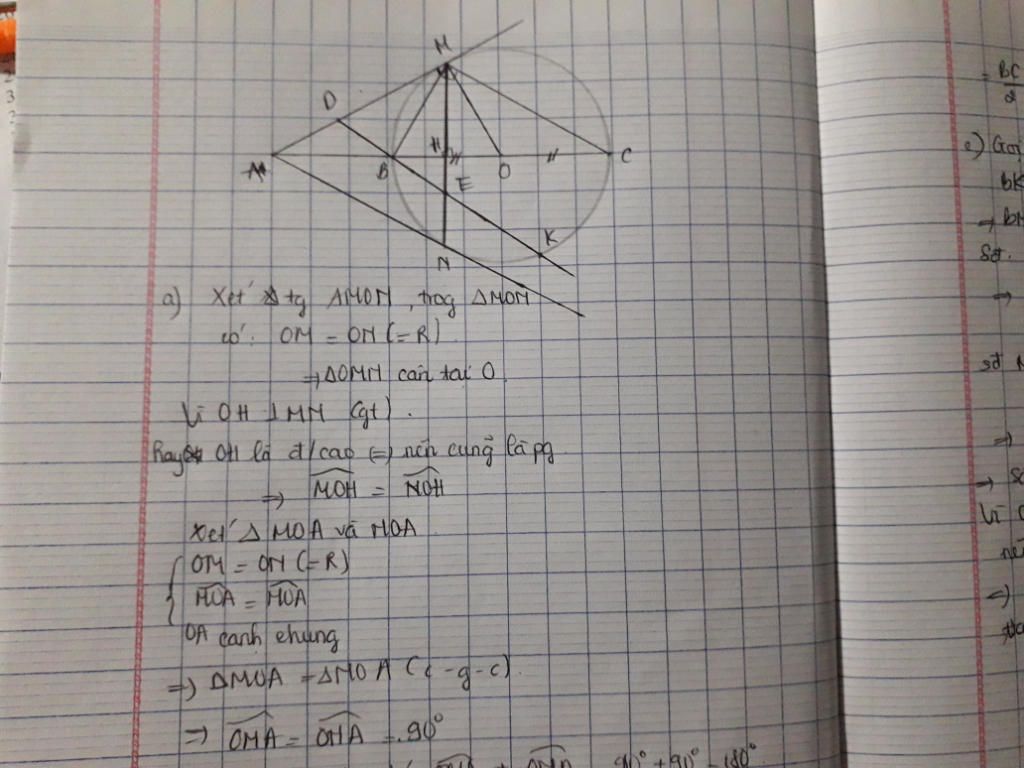 M
D
A
B
O
C
E
K
N
a) Xét tg AMON, trog ΔMON
có: OM = ON (=R)
⇒ ΔOMN cân tại O
Vì OH ⊥ MN (gt).
Hay OH là đ/cao ⇒ nên cũng là pg
⇒ MOH = NOH
Xét Δ MOA và NOA
OM = ON (=R)
MOA = NOA
OA cạnh chung
⇒ ΔMOA = ΔNOA (c-g-c).
⇒ OMA = ONA = 90°
90° + 90° = 180°
= BC/2
e) Gọi
BK
sđ.
⇒
sđ
⇒
Vì
nên